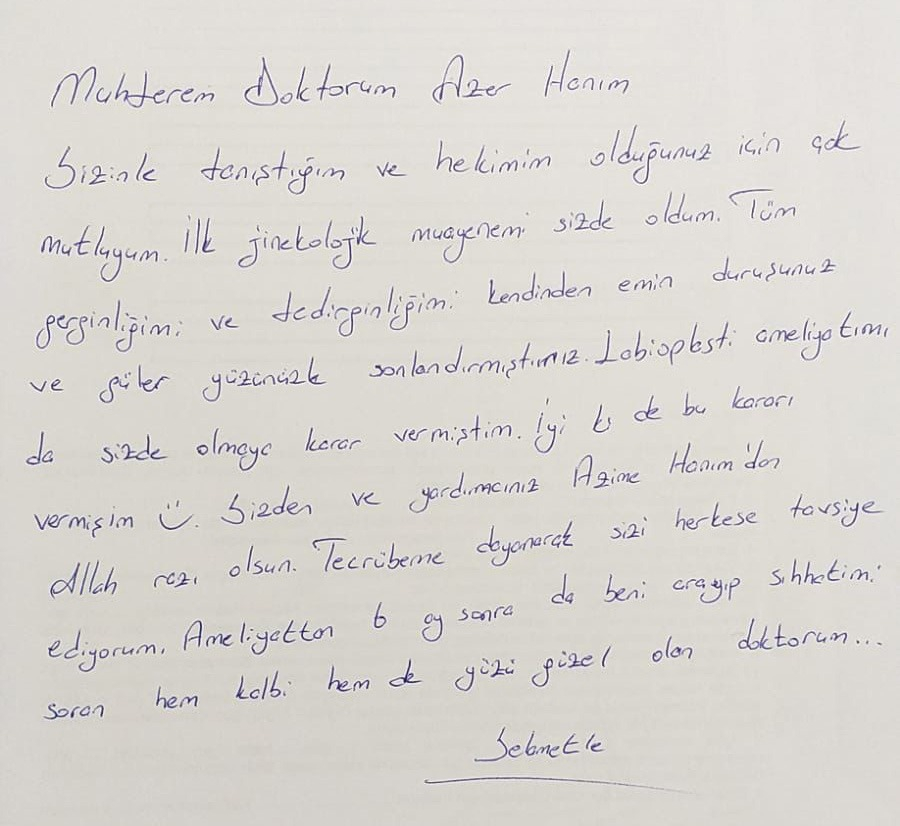 Muhterem Doktorum Azer Hanım
Sizinle tanıştığım ve hekimim olduğunuz için çok
mutluyum. İlk jinekolojik muayenemi sizde oldum. Tüm
gerginliğimi ve tedirginliğimi kendinden emin duruşunuz
ve güler yüzünüzle sonlandırmıştınız. Labioplasti ameliyatımı
da sizde olmaya karar vermiştim. İyi ki de bu kararı
vermişim ü. Sizden ve yardımcınız Azime Hanım'dan
Allah razı olsun. Tecrübeme dayanarak sizi herkese tavsiye
ediyorum. Ameliyattan 6 ay sonra da beni arayıp sıhhatimi
soran hem kalbi hem de yüzü güzel olan doktorum...